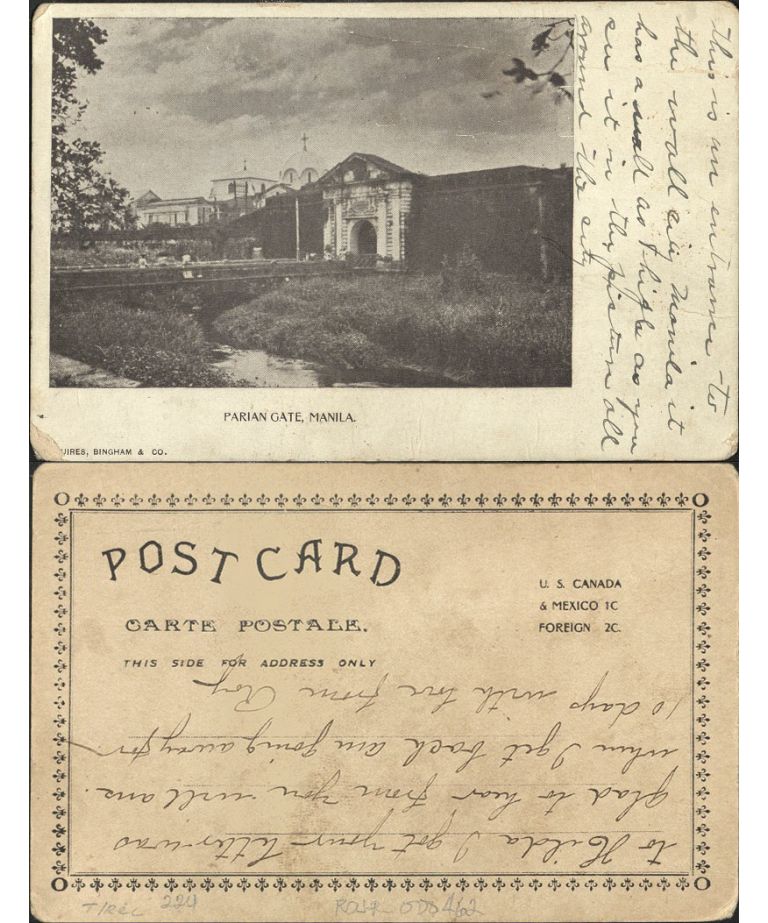 This is an entrance to
the wall city Manila it
has a wall as high as you
see it in the picture all
around the city
PARIAN GATE, MANILA.
UIRES, BINGHAM & CO.
POST CARD
CARTE POSTALE.
THIS SIDE FOR ADDRESS ONLY
U. S. CANADA
& MEXICO 1C
FOREIGN 2C.
to Hilda I got your letter was
glad to hear from you will ans.
when I get back am going away for
10 days with love from Roy
224